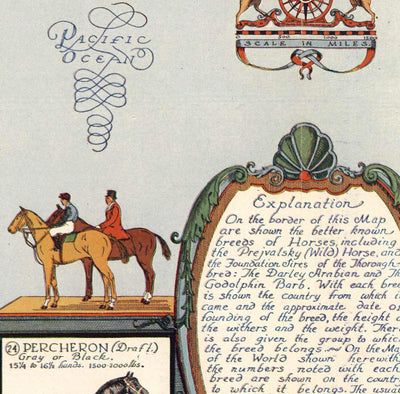 Pacific
Ocean
0 500 1000
SCALE IN MILES
Explanation
On the border of this Map
are shown the better known
breeds of Horses, including
the Prejvalsky (Wild) Horse, and
the Foundation Sires of the Thorough-
bred: The Darley Arabian and The
Godolphin Barb. With each breed
is shown the country from which it
came and the approximate date of
founding of the breed, the height at
the withers and the weight. There
is also given the group to which
the breed belongs. ~ On the Map
of the World shown herewith
the numbers noted with each
breed are shown on the country
to which it belongs. The usual
24 PERCHERON (Draft.)
Gray or Black.
15¾ to 16½ hands. 1500-2000 lbs.